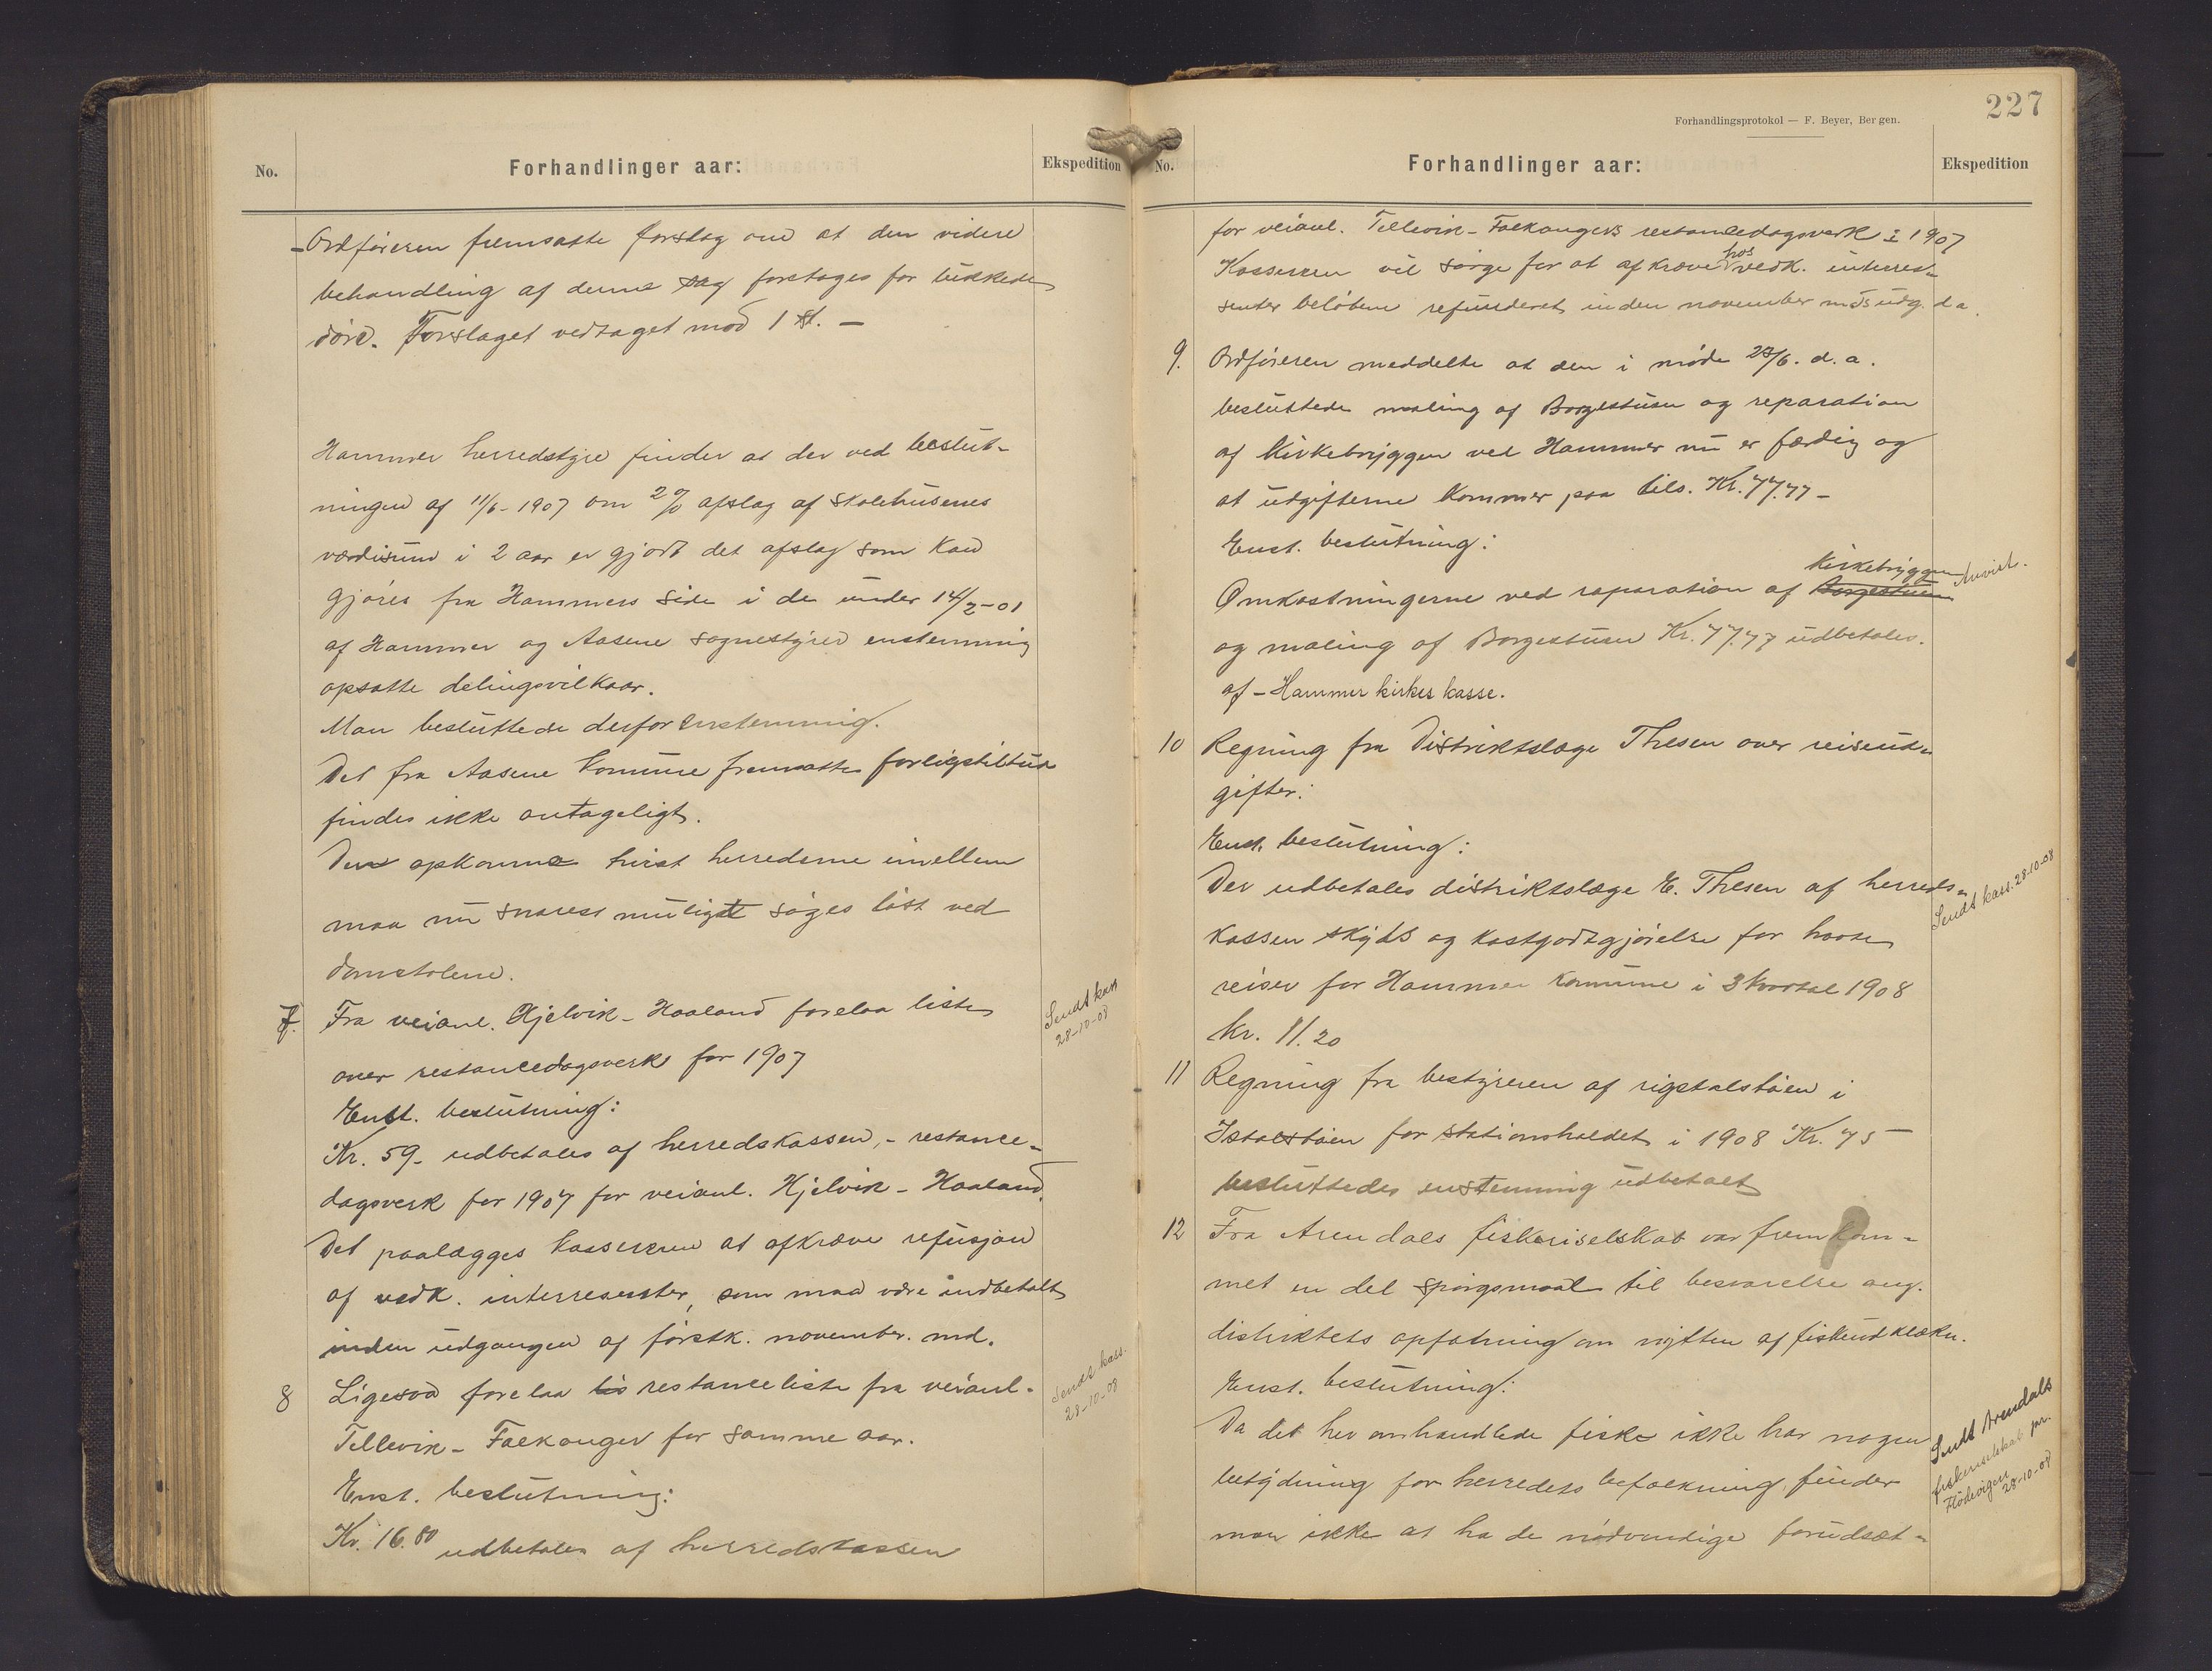 No.
Forhandlinger aar:
Ekspedition
Ordføreren fremsatte forslag om at den videre
behandling af denne sag foretages for lukkede
døre. Forslaget vedtaget mod 1 st. —
Hammer herredstyre finder at der ved beslut-
ningen af 11/6-1907 om 2% afslag af skolehusenes
værdisum i 2 aar er gjort det afslag som kan
gjøres fra Hammers side i de under 14/2-01
af Hammer og Aasene sognestyrer enstemmig
opsatte delingsvilkaar.
Man besluttede derfor enstemmig.
Det fra Aasene komune fremsatte forligstilbud
findes ikke antageligt.
Den opkomne tvist herrederne imellem
maa nu snarest muligst søges løst ved
domstolene.
7. Fra veianl. Hjelvik - Haaland forelaa liste
Sendt kass
28-10-08
over restancedagsverk for 1907
Enst. beslutning:
Kr. 59.- udbetales af herredskassen, - restance-
dagsverk for 1907 for veianl. Hjelvik - Haaland.
Det paalægges kassereren at afkræve refusjon
af vedk. interresenter, som maa være indbetalt
inden udgangen af førstk. november md.
8 Ligesaa forelaa lis restanceliste fra veianl.
Sendt kass.
28-10-08
Tellevik - Falkanger for samme aar.
Enst. beslutning:
Kr. 16.80 udbetales af herredskassen
227
Forhandlingsprotokol — F. Beyer, Bergen.
No.
Forhandlinger aar:
Ekspedition
for veianl. Tellevik - Falkangers restancedagsverk i 1907
Kassereren vil sørge for at afkræve hos vedk. interres-
senter beløbene refunderet inden november mds udg. d a.
9. Ordføreren meddelte at den i møde 23/6. d. a.
besluttede maling af Borgestuen og reparation
af Kirkebryggen ved Hammer nu er færdig og
at udgifterne kommer paa tils. Kr. 77.77 -
Enst. beslutning:
Omkostningerne ved reparation af Borgestuen Kirkebryggen
Anvist.
og maling af Borgestuen Kr. 77.77 udbetales.
af - Hammer kirkes kasse.
10 Regning fra Distriktslæge Thesen over reiseud-
gifter:
Enst. beslutning:
Der udbetales distriktslæge E. Thesen af herreds-
Sendt kass. 28-10-08
kassen skyds og kostgodtgjørelse for havte
reiser for Hammer komune i 3 kvartal 1908
kr. 11.20
11 Regning fra bestyreren af rigstalstøen i
Istalstøen for stationsholdet i 1908 Kr. 75 —
besluttedes enstemmig udbetalt
12 Fra Arendals fiskeriselskab var fremkom-
met en del spørgsmaal til besvarelse ang.
distriktets opfatning om nytten af fiskeudklækn.
Enst. beslutning:
Da det her omhandlede fiske ikke har nogen
Sendt Arendals
fiskeriselskab pr.
Flødevigen
28-10-08
betydning for herredets befolkning, finder
man ikke at ha de nødvendige forudsæt-